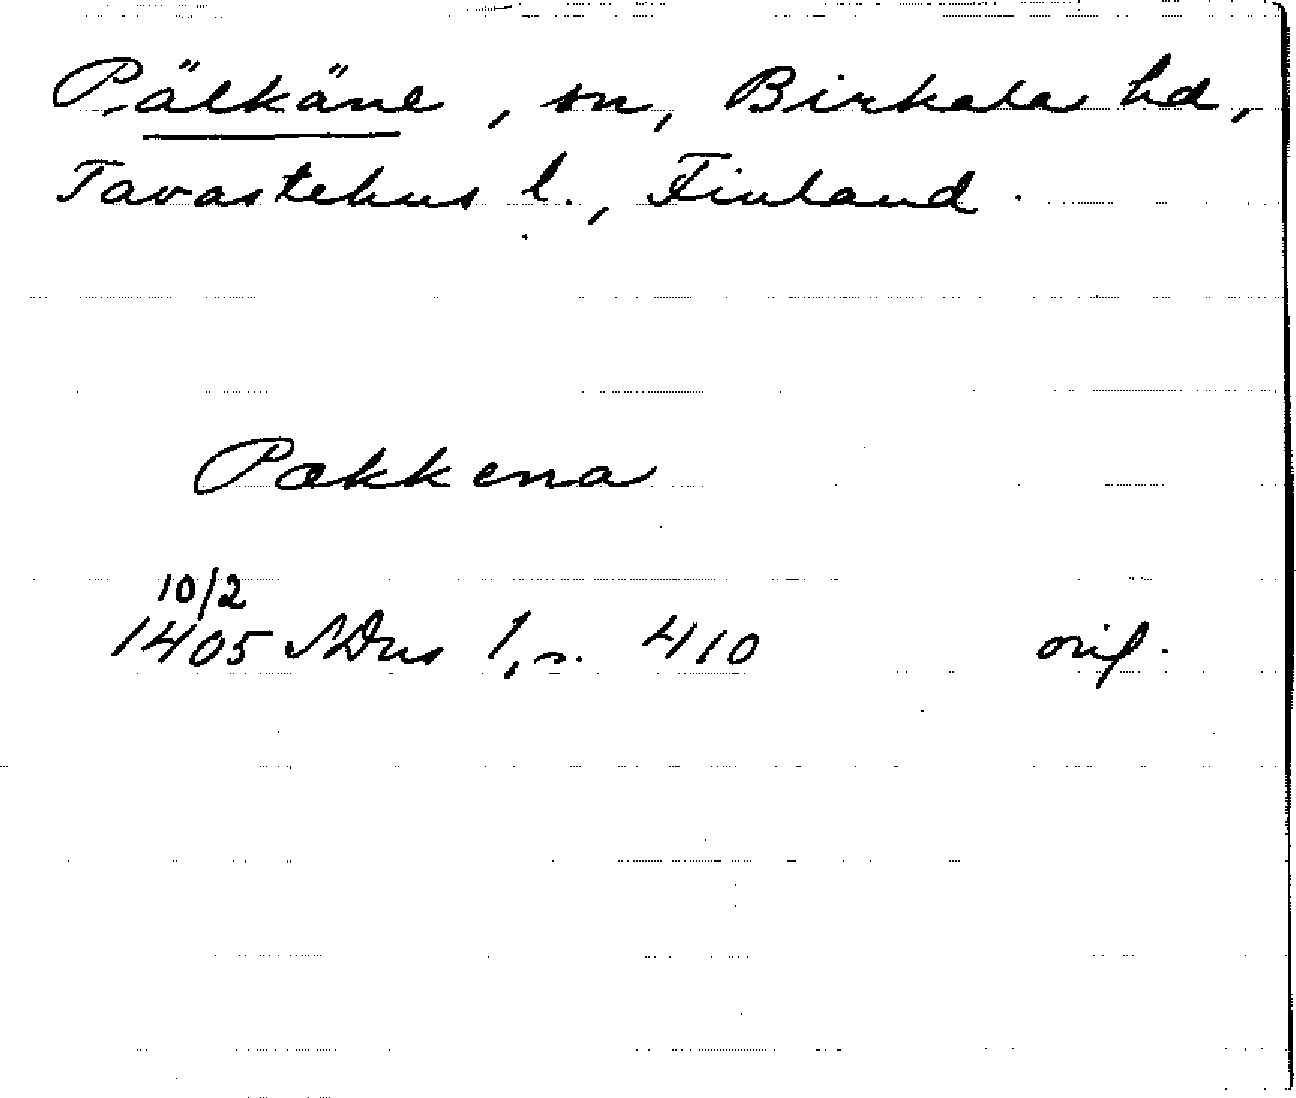 Pälkäne, sn, Birkala hd,
Tavastehus l., Finland.
Pækkena
10/2
1405 SDns 1, s. 410 orig.